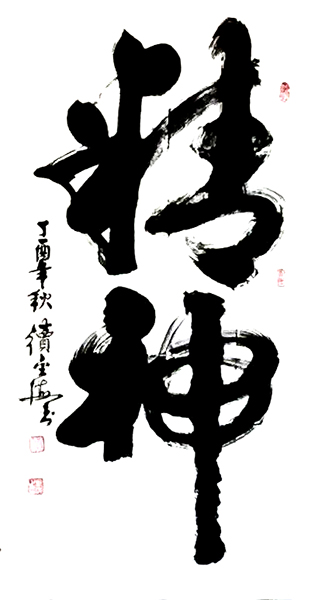 精神
丁酉年秋